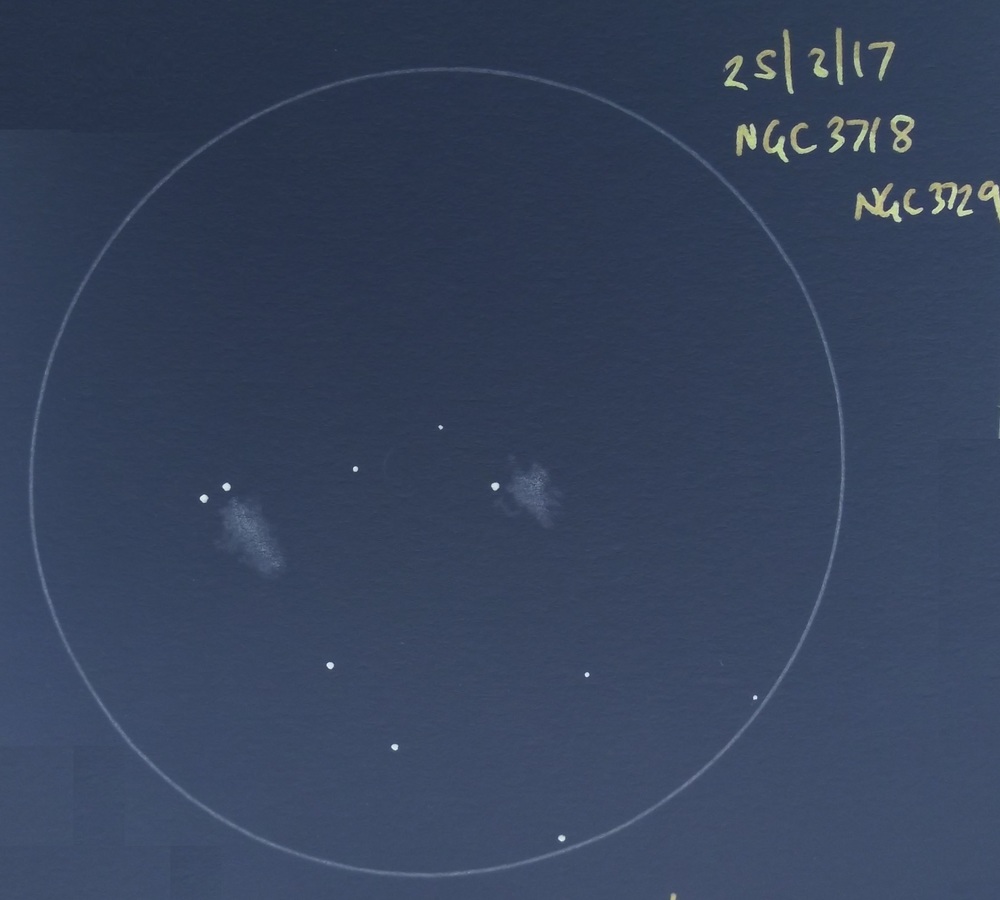 25/2/17
NGC 3718
NGC 3729